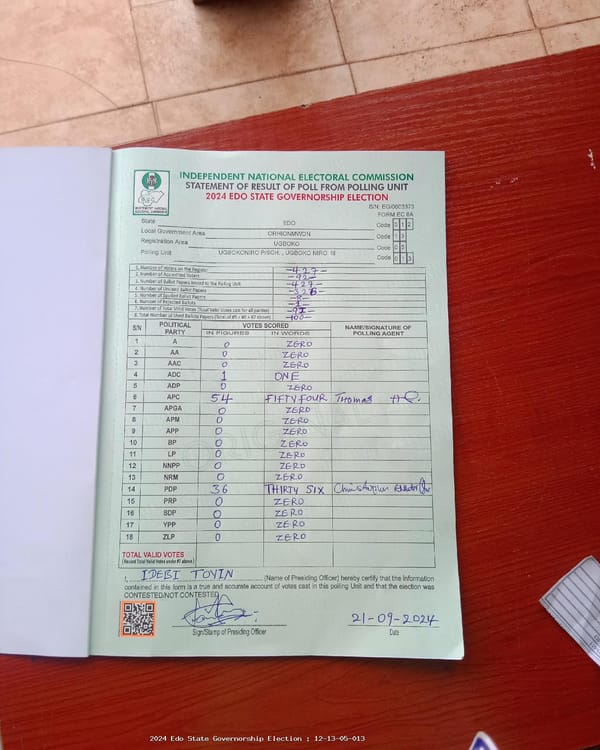 INDEPENDENT NATIONAL ELECTORAL COMMISSION
STATEMENT OF RESULT OF POLL FROM POLLING UNIT
2024 EDO STATE GOVERNORSHIP ELECTION
S/N: EG/0003373
FORM EC 8A
State EDO Code 0 1 2
Local Government Area ORHIONMWON Code 1 3
Registration Area UGBOKO Code 0 5
Polling Unit UGBOKONIRO P/SCH., UGBOKO NIRO 18 Code 0 1 3
1. Number of Voters on the Register -427-
2. Number of Accredited Voters -92-
3. Number of Ballot Papers Issued to the Polling Unit -427-
4. Number of Unused Ballot Papers
5. Number of Spoiled Ballot Papers
6. Number of Rejected Ballots -1-
7. Number of Total Valid Votes (Total valid Votes cast for all parties) -91-
8. Total Number of Used Ballot Papers (Total of #5 + #6 + #7 above) -100-
S/N POLITICAL PARTY VOTES SCORED NAME/SIGNATURE OF POLLING AGENT
IN FIGURES IN WORDS
1 A 0 ZERO
2 AA 0 ZERO
3 AAC 0 ZERO
4 ADC 1 ONE
5 ADP 0 ZERO
6 APC 54 FIFTY FOUR Thomas
7 APGA 0 ZERO
8 APM 0 ZERO
9 APP 0 ZERO
10 BP 0 ZERO
11 LP 0 ZERO
12 NNPP 0 ZERO
13 NRM 0 ZERO
14 PDP 36 THIRTY SIX Christopher
15 PRP 0 ZERO
16 SDP 0 ZERO
17 YPP 0 ZERO
18 ZLP 0 ZERO
TOTAL VALID VOTES
(Record Total Valid Votes under #7 above)
I, IDEBI TOYIN (Name of Presiding Officer) hereby certify that the information
contained in this form is a true and accurate account of votes cast in this polling Unit and that the election was
CONTESTED/NOT CONTESTED
21-09-2024
Sign/Stamp of Presiding Officer Date
2024 Edo State Governorship Election : 12-13-05-013